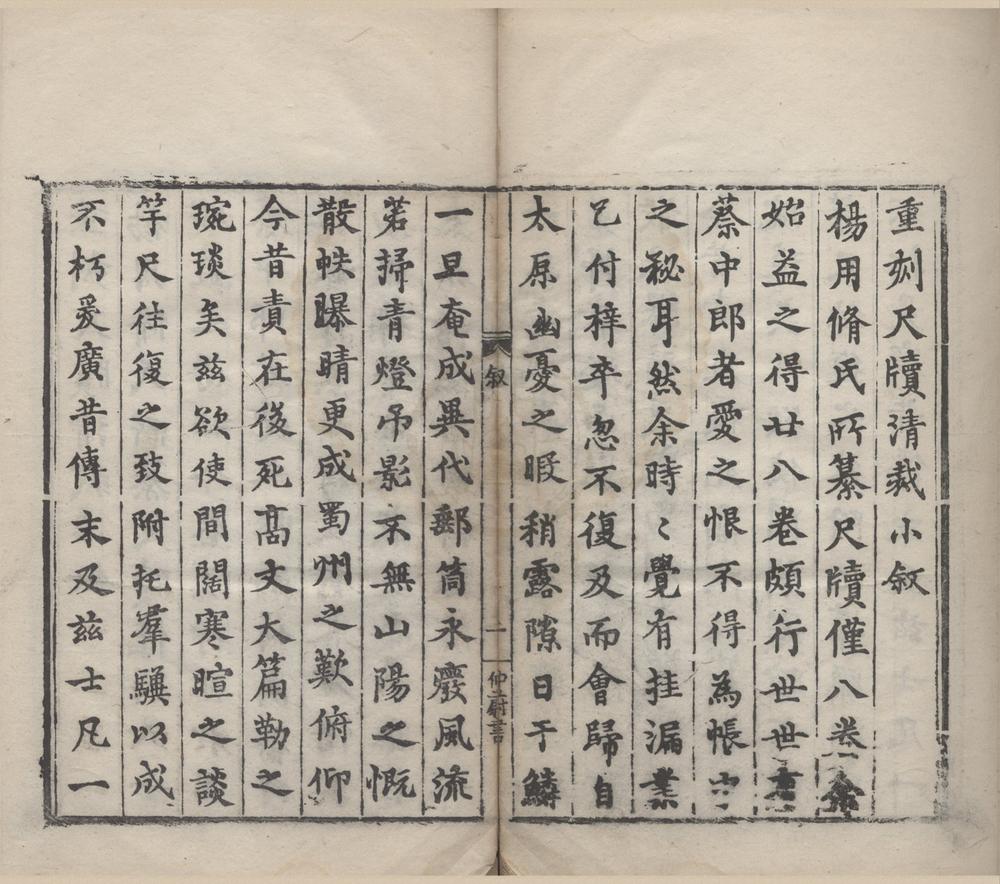 重刻尺牘清裁小叙
楊用脩氏所纂尺牘僅八卷余
始益之得廿八卷頗行世世
蔡中郎者愛之恨不得為帳中
之秘耳然余時〻覺有挂漏業
已付梓卒怱不復及而會歸自
太原幽憂之暇稍露隙日于鱗
叙
一
仲蔚書
一旦奄成異代郵筒永廢風流
若掃青燈吊影不無山陽之慨
散帙曝晴更成蜀州之歎俯仰
今昔責在後死髙文大篇勒之
琬琰矣兹欲使間闊寒暄之談
竿尺往復之致附托羣驥以成
不朽爰廣昔傳末及兹士凡一